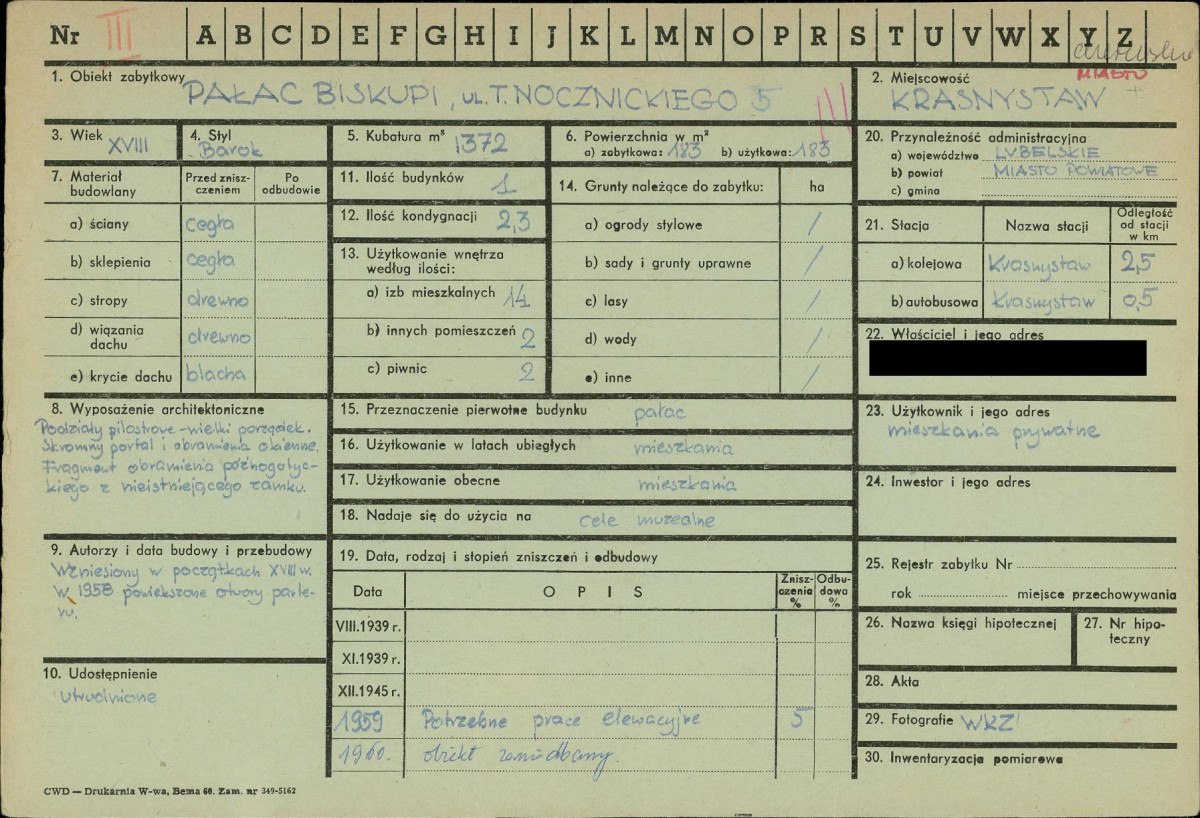 Nr III A B C D E F G H I J K L M N O P R S T U V W X Y Z
1. Obiekt zabytkowy
PAŁAC BISKUPI, UL. T. NOCZNICKIEGO 5
2. Miejscowość
MIASTO
KRASNYSTAW
3. Wiek XVIII
4. Styl
Barok
5. Kubatura m³ 1372
6. Powierzchnia w m²
a) zabytkowa: 183 b) użytkowa: 183
20. Przynależność administracyjna
a) województwo LUBELSKIE
b) powiat MIASTO POWIATOWE
c) gmina
7. Materiał budowlany
Przed zniszczeniem
Po odbudowie
a) ściany cegła
b) sklepienia cegła
c) stropy drewno
d) wiązania dachu drewno
e) krycie dachu blacha
11. Ilość budynków 1
12. Ilość kondygnacji 2,3
13. Użytkowanie wnętrza
według ilości:
a) izb mieszkalnych 14
b) innych pomieszczeń 2
c) piwnic 2
14. Grunty należące do zabytku: ha
a) ogrody stylowe /
b) sady i grunty uprawne /
c) lasy /
d) wody /
e) inne /
21. Stacja Nazwa stacji Odległość od stacji w km
a) kolejowa Krasnystaw 2,5
b) autobusowa Krasnystaw 0,5
22. Właściciel i jego adres
8. Wyposażenie architektoniczne
Podziały pilastrowe – wielki porządek.
Skromny portal i obramienia okienne.
Fragment obramienia późnogotyc-
kiego z nieistniejącego zamku.
15. Przeznaczenie pierwotne budynku pałac
16. Użytkowanie w latach ubiegłych mieszkania
17. Użytkowanie obecne mieszkania
18. Nadaje się do użycia na cele muzealne
23. Użytkownik i jego adres
mieszkania prywatne
24. Inwestor i jego adres
9. Autorzy i data budowy i przebudowy
Wzniesiony w początkach XVIII w.
W 1958 powiększone otwory parte-
ru.
10. Udostępnienie
utrudnione
19. Data, rodzaj i stopień zniszczeń i odbudowy
Data OPIS Zniszczenia % Odbudowa %
VIII.1939 r.
XI.1939 r.
XII.1945 r.
1959 Potrzebne prace elewacyjne 5
1960. obiekt zaniedbany.
25. Rejestr zabytku Nr
rok miejsce przechowywania
26. Nazwa księgi hipotecznej
27. Nr hipo-
teczny
28. Akta
29. Fotografie WKZ
30. Inwentaryzacja pomiarowa
CWD — Drukarnia W-wa, Bema 60. Zam. nr 349-5162